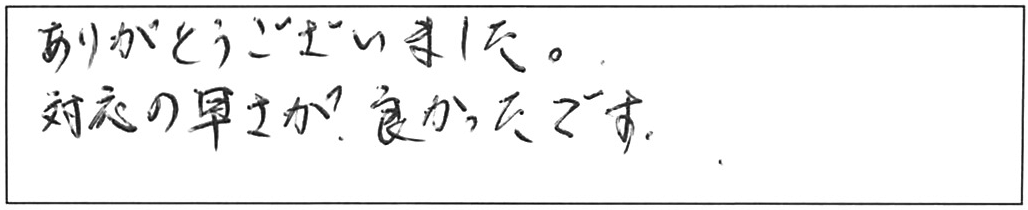 ありがとうございました。
対応の早さが良かったです.